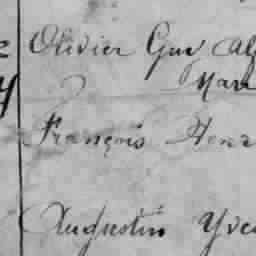 Olivier Guy Al
Mar
François Henr
Augustin Yve